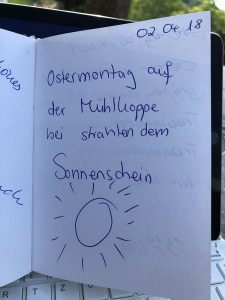 02.04.18
Ostermontag auf
der Mühlkoppe
bei strahlen dem
Sonnenschein